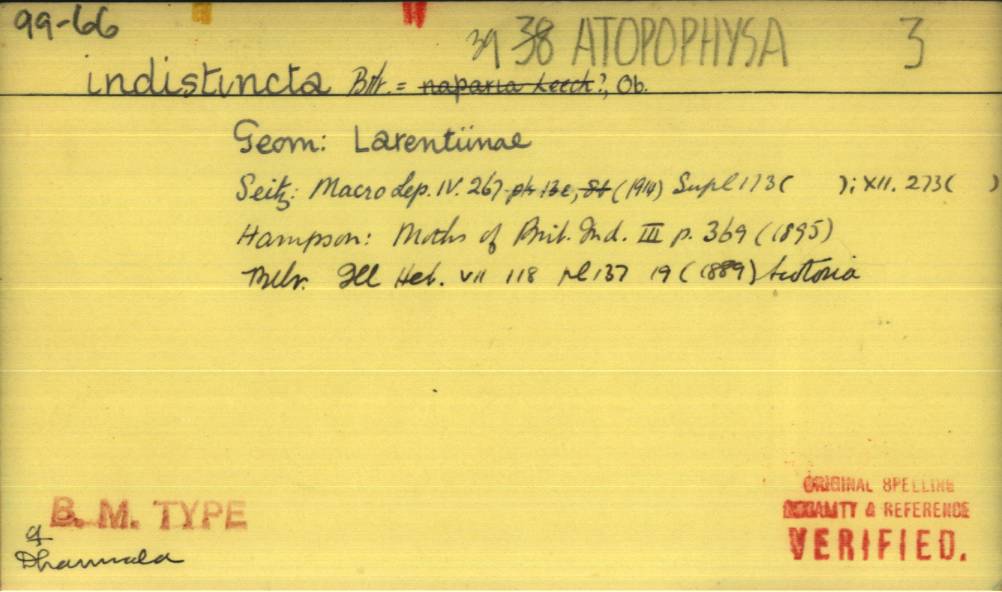 99-66
39 38 ATOPOPHYSA 3
indistincta Btlr. = naparia Leech?, Ob.
Geom: Larentiinae
Seitz: Macro Lep. IV. 267 pl. 13e, (1914) Supl 173 ( ); XII. 273 ( )
Hampson: Moths of Brit. Ind. III p. 369 (1895)
Btlr. Ill Het. VII 118 pl 137 19 (1889) Scotosia
B. M. TYPE
Dharmsala
ORIGINAL SPELLING
LOCALITY & REFERENCE
VERIFIED.